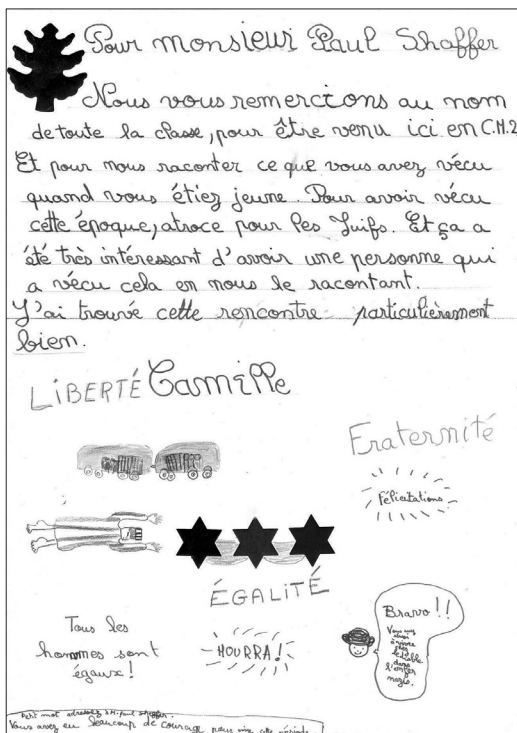 Pour monsieur Paul Shaffer
Nous vous remercions au nom
de toute la classe, pour être venu ici en C.M.2
Et pour nous raconter ce que vous avez vécu
quand vous étiez jeune. Pour avoir vécu
cette époque, atroce pour les Juifs. Et ça a
été très intéressant d'avoir une personne qui
a vécu cela en nous le racontant.
J'ai trouvé cette rencontre particulièrement
bien.
LIBERTÉ Camille
Fraternité
Félicitations
ÉGALITÉ
Tous les
hommes sont
égaux !
HOURRA !
Bravo !!
Vous avez
dans
l'enfer
nazis.
Petit mot adressé à M. Paul Shaffer.
Vous avez eu beaucoup de courage pour cette période